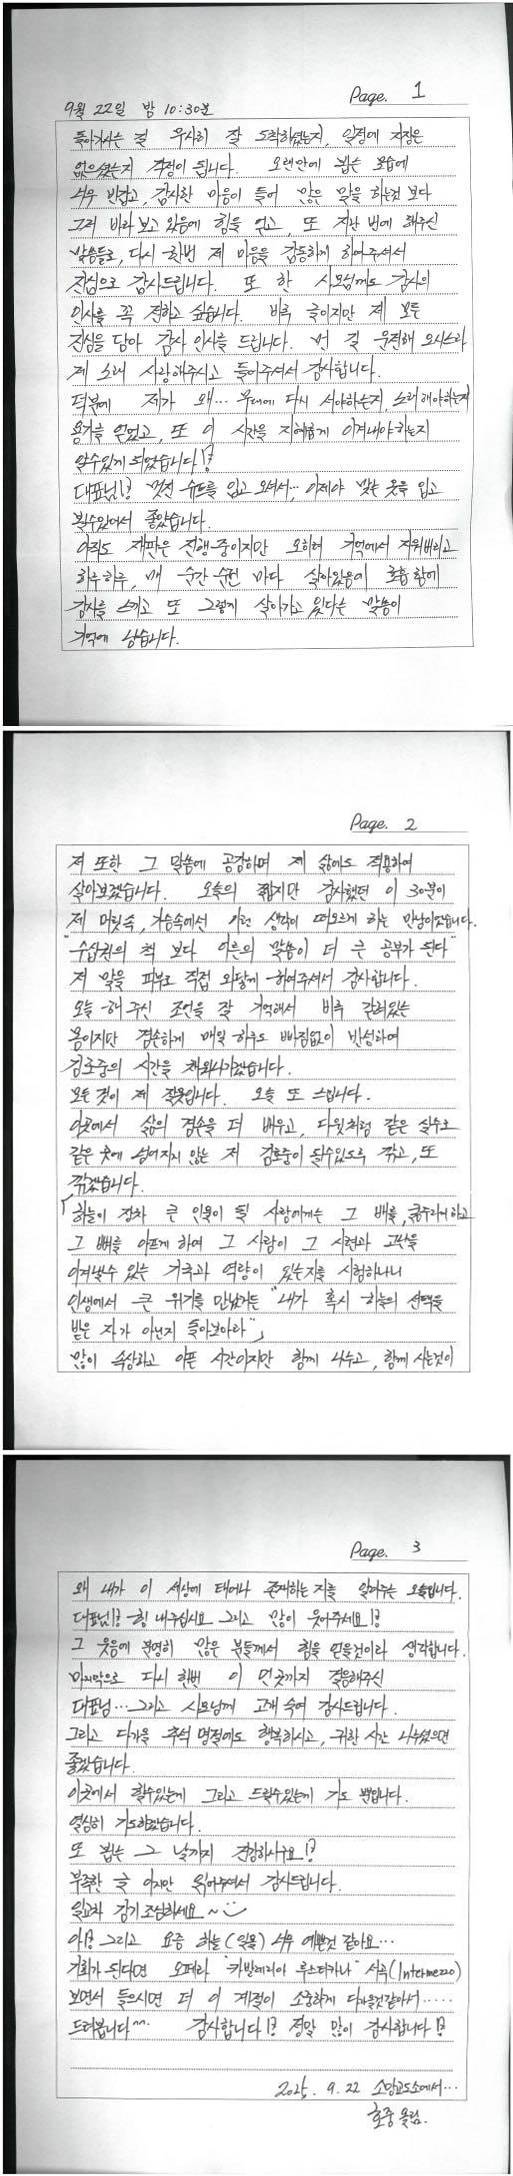 Page. 1
9월 22일 밤 10:30분
돌아가시는 길 무사히 잘 도착하셨는지, 일정에 지장은
없으셨는지 걱정이 됩니다. 오랜만에 뵙는 모습에
너무 반갑고, 감사한 마음이 들어 많은 말을 하는것 보다
그저 바라보고 있음에 힘을 얻고, 또 지난 번에 해주신
말씀들로, 다시 한번 제 마음을 감동하게 하여주셔서
진심으로 감사드립니다. 또 한 사모님께도 감사의
인사를 꼭 전하고 싶습니다. 비록 글이지만 제 모든
진심을 담아 감사 인사를 드립니다. 먼 길 운전해 오시느라
제 노래 사랑해주시고 들어주셔서 감사합니다.
덕분에 제가 왜... 무대에 다시 서야하는지, 노래해야하는지
용기를 얻었고, 또 이 시간을 지혜롭게 이겨내야하는지
알수있게 되었습니다!?
대표님!? 멋진 슈트를 입고 오셔서... 이제야 맞는 옷을 입고
뵐수있어서 좋았습니다.
아직도 재판은 진행중이지만 오히려 기억에서 지워버리고
하루하루, 매 순간 순간 마다 살아있음에 호흡함에
감사를 느끼고 또 그렇게 살아가고 있다는 말씀이
기억에 남습니다.
Page. 2
저 또한 그 말씀에 공감하며 제 삶에도 적용하여
살아보겠습니다. 오늘의 짧지만 감사했던 이 30분이
제 머릿속, 가슴속에서 이런 생각이 떠오르게 하는 만남이었습니다.
"수십권의 책 보다 어른의 말씀이 더 큰 공부가 된다"
저 말을 피부로 직접 와닿게 하여주셔서 감사합니다.
오늘 해 주신 조언을 잘 기억해서 비록 갇혀있는
몸이지만 겸손하게 매일 하루도 빠짐없이 반성하며
김호중의 시간을 채워나가겠습니다.
모든 것이 제 잘못입니다. 오늘 또 느낍니다.
이곳에서 삶의 겸손을 더 배우고, 다윗처럼 같은 실수로
같은 곳에 넘어지지 않는 저 김호중이 될수있도록 깎고, 또
깎겠습니다.
「하늘이 장차 큰 인물이 될 사람에게는 그 배를, 굶주리게 하고
그 뼈를 아프게 하여 그 사람이 그 시련과 고난을
이겨낼수 있는 기국과 역량이 있는지를 시험하나니
인생에서 큰 위기를 만났거든 "내가 혹시 하늘의 선택을
받은 자가 아닌지 돌아보아라"」
많이 속상하고 아픈 시간이지만 함께 나누고, 함께 사는것이
Page. 3
왜 내가 이 세상에 태어나 존재하는지를 일어주는 오늘입니다.
대표님!? 힘 내주십시요 그리고 많이 웃어주세요!?
그 웃음에 분명히 많은 분들께서 힘을 얻을것이라 생각합니다.
마지막으로 다시 한번 이 먼곳까지 걸음해주신
대표님... 그리고 사모님께 고개 숙여 감사드립니다.
그리고 다가올 추석 명절에도 행복하시고, 귀한 시간 나누셨으면
좋겠습니다.
이곳에서 할수있는게 그리고 드릴수있는게 기도 뿐입니다.
열심히 기도하겠습니다.
또 뵙는 그 날까지 건강하시구요!?
부족한 글 이지만 읽어주셔서 감사드립니다.
일교차 감기조심하세요~
아!? 그리고 요즘 하늘(일몰) 너무 예쁜것 같아요...
기회가 된다면 오페라 "카발레리아 루스티카나" 서곡(Intermezzo)
보면서 들으시면 더 이 계절이 소중하게 다가올것같아서.....
드려봅니다^^ 감사합니다!? 정말 많이 감사합니다!?
2025. 9. 22 소망교도소에서...
호중 올림.